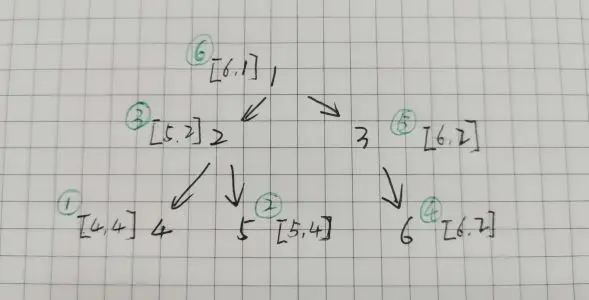 ⑥ [6,1] 1
③ [5,2] 2 3 ⑤ [6,2]
① [4,4] 4 5 ② [5,4] 6 ④ [6,2]